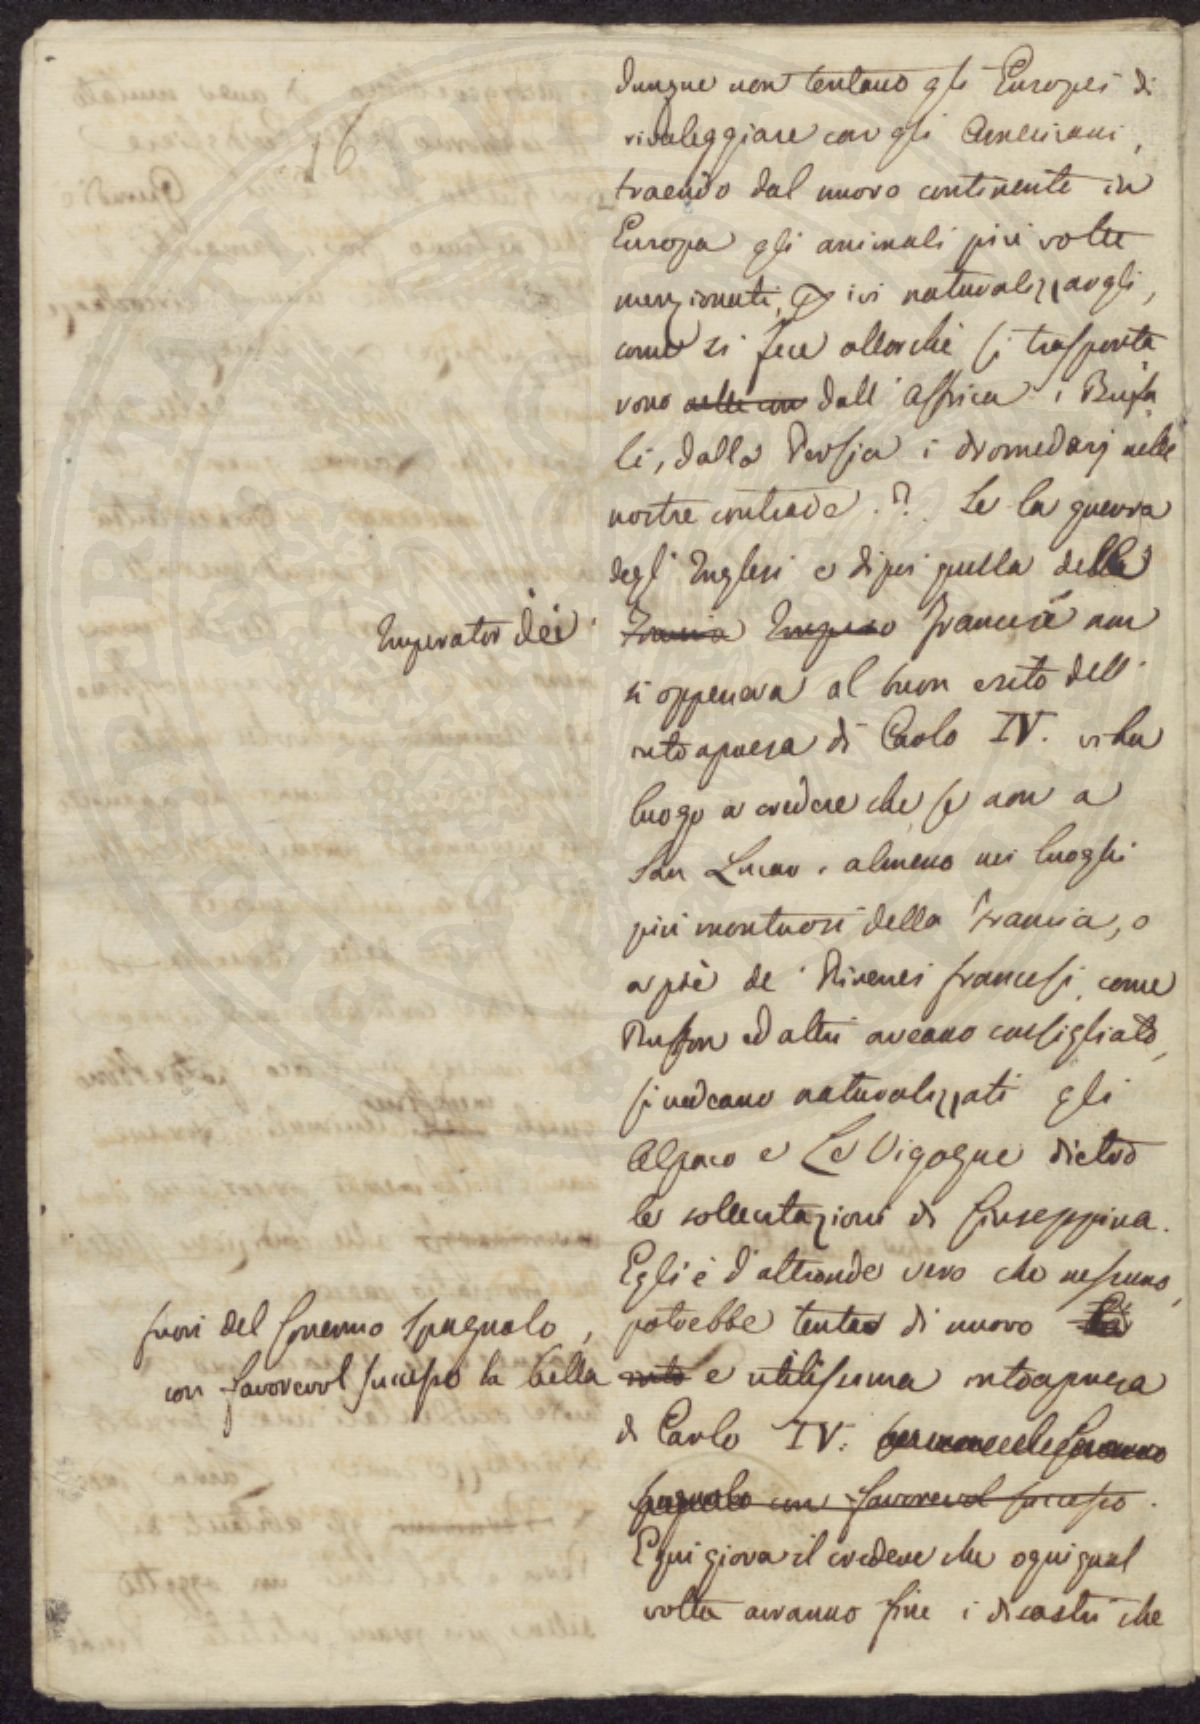 16
dunque non tentano gli Europei di
rivaleggiare con gli Americani,
traendo dal nuovo continente in
Europa gli animali più volte
menzionati, & ivi naturalizzargli,
come si fece allorchè si trasporta
rono dall' Affrica i Bufa
li, dalla Persia i dromedarj nelle
nostre contrade.? Se la guerra
degl' Inglesi e di poi quella della
Imperator dei
Francia Impero Francese non
si opponeva al buon esito dell'
intrapresa di Carlo IV. vi ha
luogo a credere che se non a
San Lucar, almeno nei luoghi
più montuosi della Francia, o
a piè de' Pirenei francesi, come
Buffon ed altri aveano consigliato,
si vedeano naturalizzati gli
Alpaco e Le Vigogne dietro
le sollecitazioni di Giuseppina.
Egli è d'altronde vero che nessuno,
fuori del Governo Spagnolo,
potrebbe tentar di nuovo la
con favorevol successo la bella
e utilissima intrapresa
di Carlo IV. Governo
spagnolo con favorevol successo.
E qui giova il credere che ogni qual
volta avranno fine i disastri che